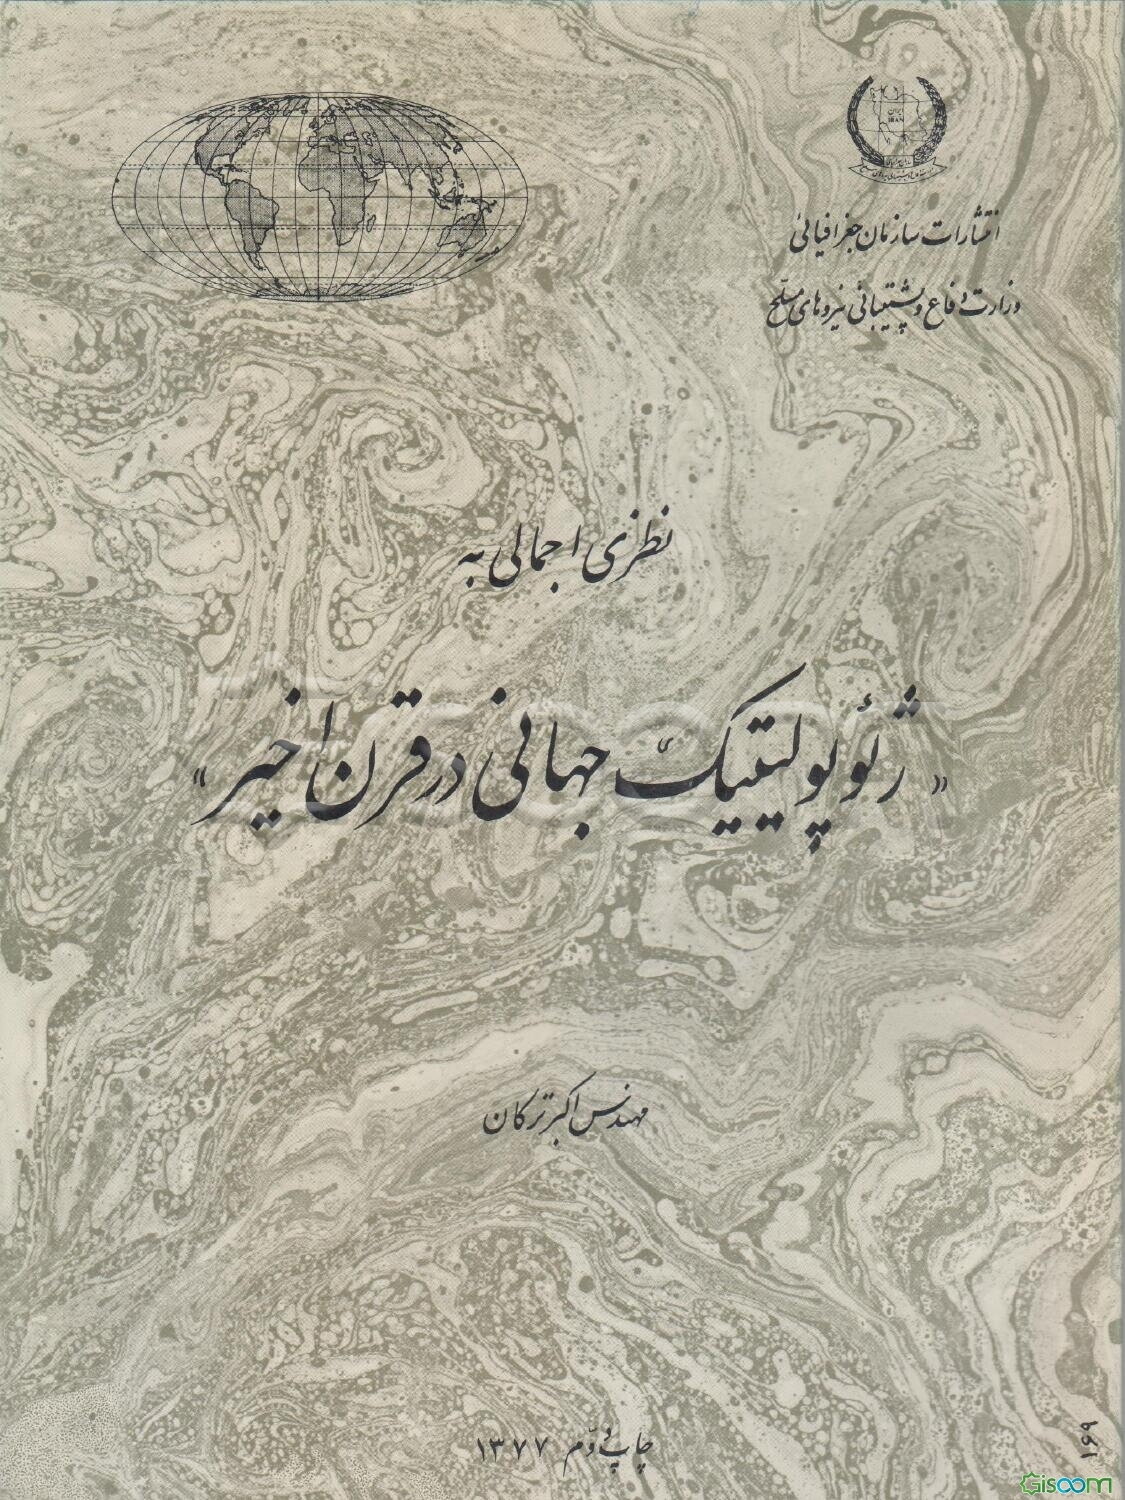 ایران
IRAN
انتشارات سازمان جغرافیائی
وزارت دفاع و پشتیبانی نیروهای مسلح
نظری اجمالی به
«ژئوپولیتیک جهانی در قرن اخیر»
مهندس اکبر ترکان
چاپ دوّم ۱۳۷۷
Gisoom